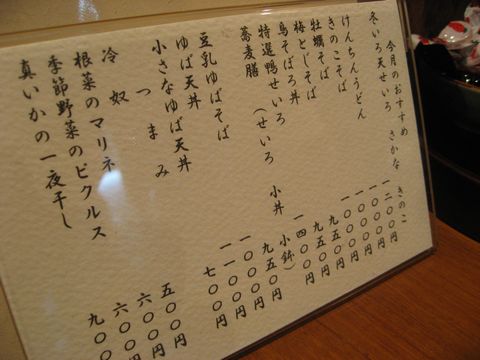 今月のおすすめ
冬いろ天せいろ さかな きのこ 一二〇〇円
けんちんうどん 一〇〇〇円
きのこそば 一〇〇〇円
牡蠣そば 一〇〇〇円
梅とじそば 九五〇円
鳥そぼろ丼 九五〇円
特選鴨せいろ 一四〇〇円
蕎麦膳 (せいろ 小丼 小鉢) 九五〇円
豆乳ゆばそば 一〇〇〇円
ゆば天丼 一一〇〇円
小さなゆば天丼 七〇〇円
つまみ
冷奴 五〇〇円
根菜のマリネ 六〇〇円
季節野菜のピクルス 六〇〇円
真いかの一夜干し 九〇〇